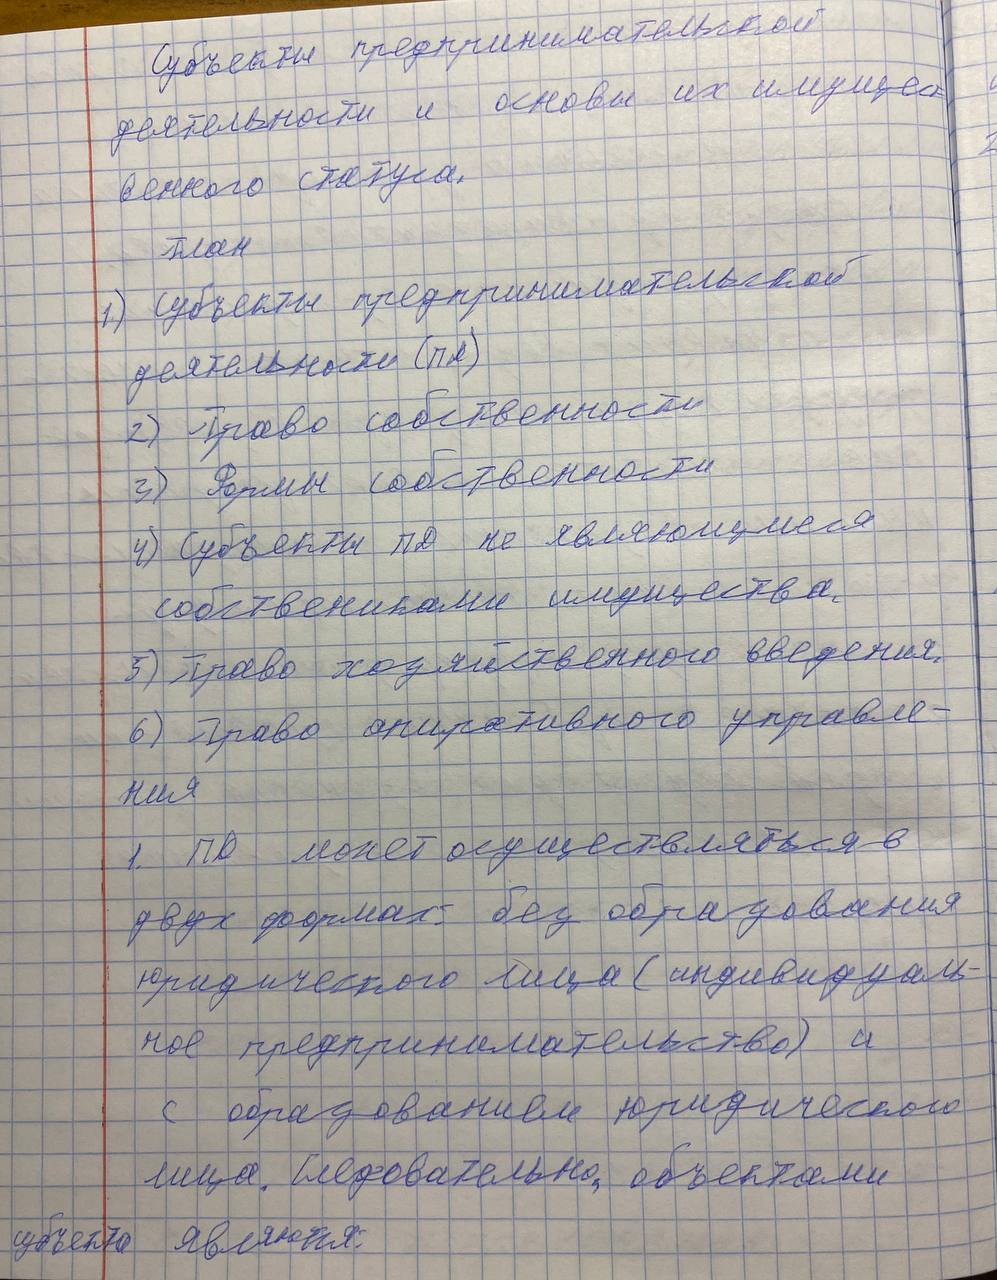 Субъекты предпринимательской
деятельности и основы их имущест
венного статуса.
План
1) Субъекты предпринимательской
деятельности (ПД)
2) Право собственности
3) Формы собственности
4) Субъекты ПД не являющимеся
собствениками имущества.
5) Право хозяйственного введения.
6) Право опиративного управле-
ния
1. ПД может осуществляться в
двух формах: без образования
юридического лица (индивидуаль-
ное предпринимательство) и
с образованием юридического
лица. Следовательно, объектами
субъекта являются: